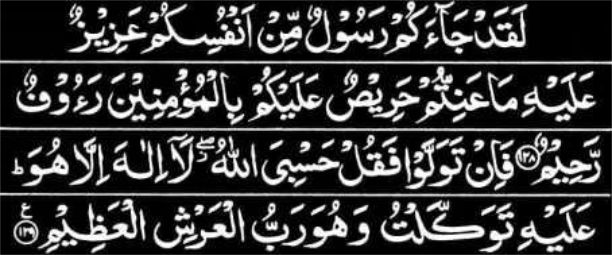 لَقَدۡ جَآءَكُمۡ رَسُوۡلٌ مِّنۡ اَنۡفُسِكُمۡ عَزِيۡزٌ
عَلَيۡهِ مَا عَنِتُّمۡ حَرِيۡصٌ عَلَيۡكُمۡ بِالۡمُؤۡمِنِيۡنَ رَءُوۡفٌ
رَّحِيۡمٌ ﴿۱۲۸﴾ فَاِنۡ تَوَلَّوۡا فَقُلۡ حَسۡبِىَ اللّٰهُ ۖ لَاۤ اِلٰهَ اِلَّا هُوَ ؕ
عَلَيۡهِ تَوَكَّلۡتُ وَهُوَ رَبُّ الۡعَرۡشِ الۡعَظِيۡمِ ﴿۱۲۹﴾ ع